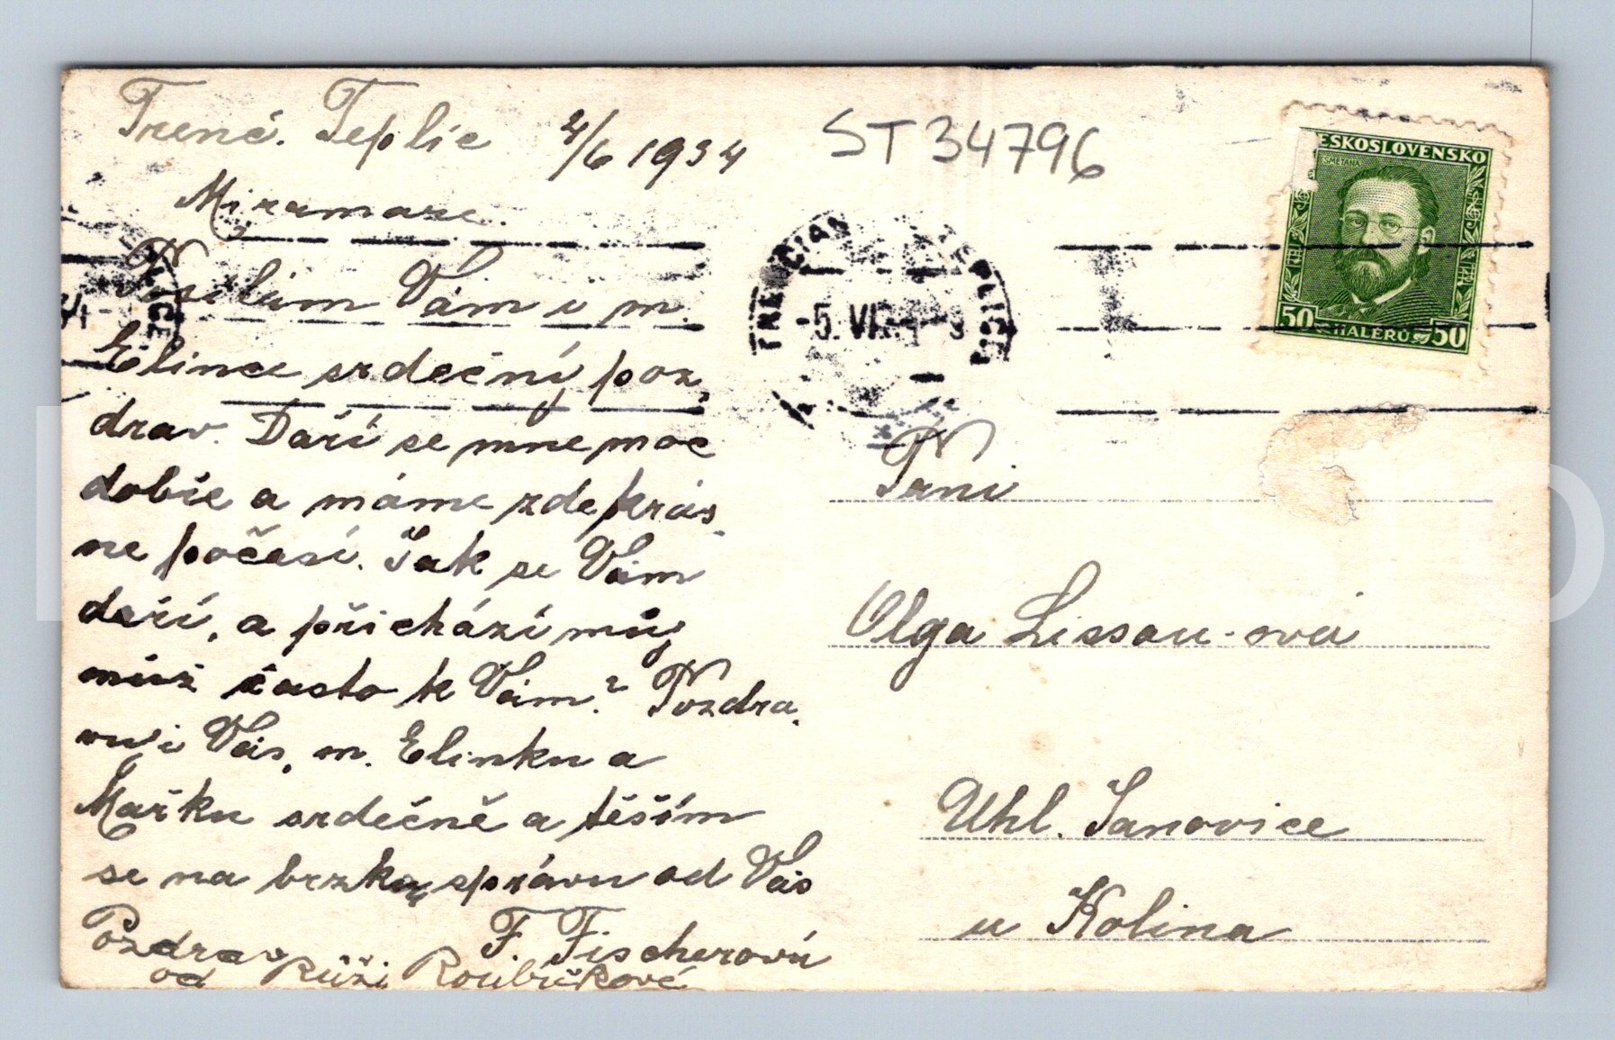 Trenč. Teplic 4/6 1934
Miramare.
Posílám Vám i m.
Elince srdečný poz,
drav. Daří se mne moc
dobře a máme zde krás
ne počasí. Jak se Vám
daří, a přichází můj
muž často k Vám? Pozdra,
vuji Vás, m. Elinku a
Mařku srdečně a těším
se na brzkou správu od Vás
F. Fischerová
Pozdrav
od Růži Roubíčkové
ST 34796
TRENČIAN TEPLICE
-5. VI.
ČESKOSLOVENSKO
SMETANA
50 HALÉRŮ 50
Paní
Olga Lissau-ová
Uhl. Janovice
u Kolina